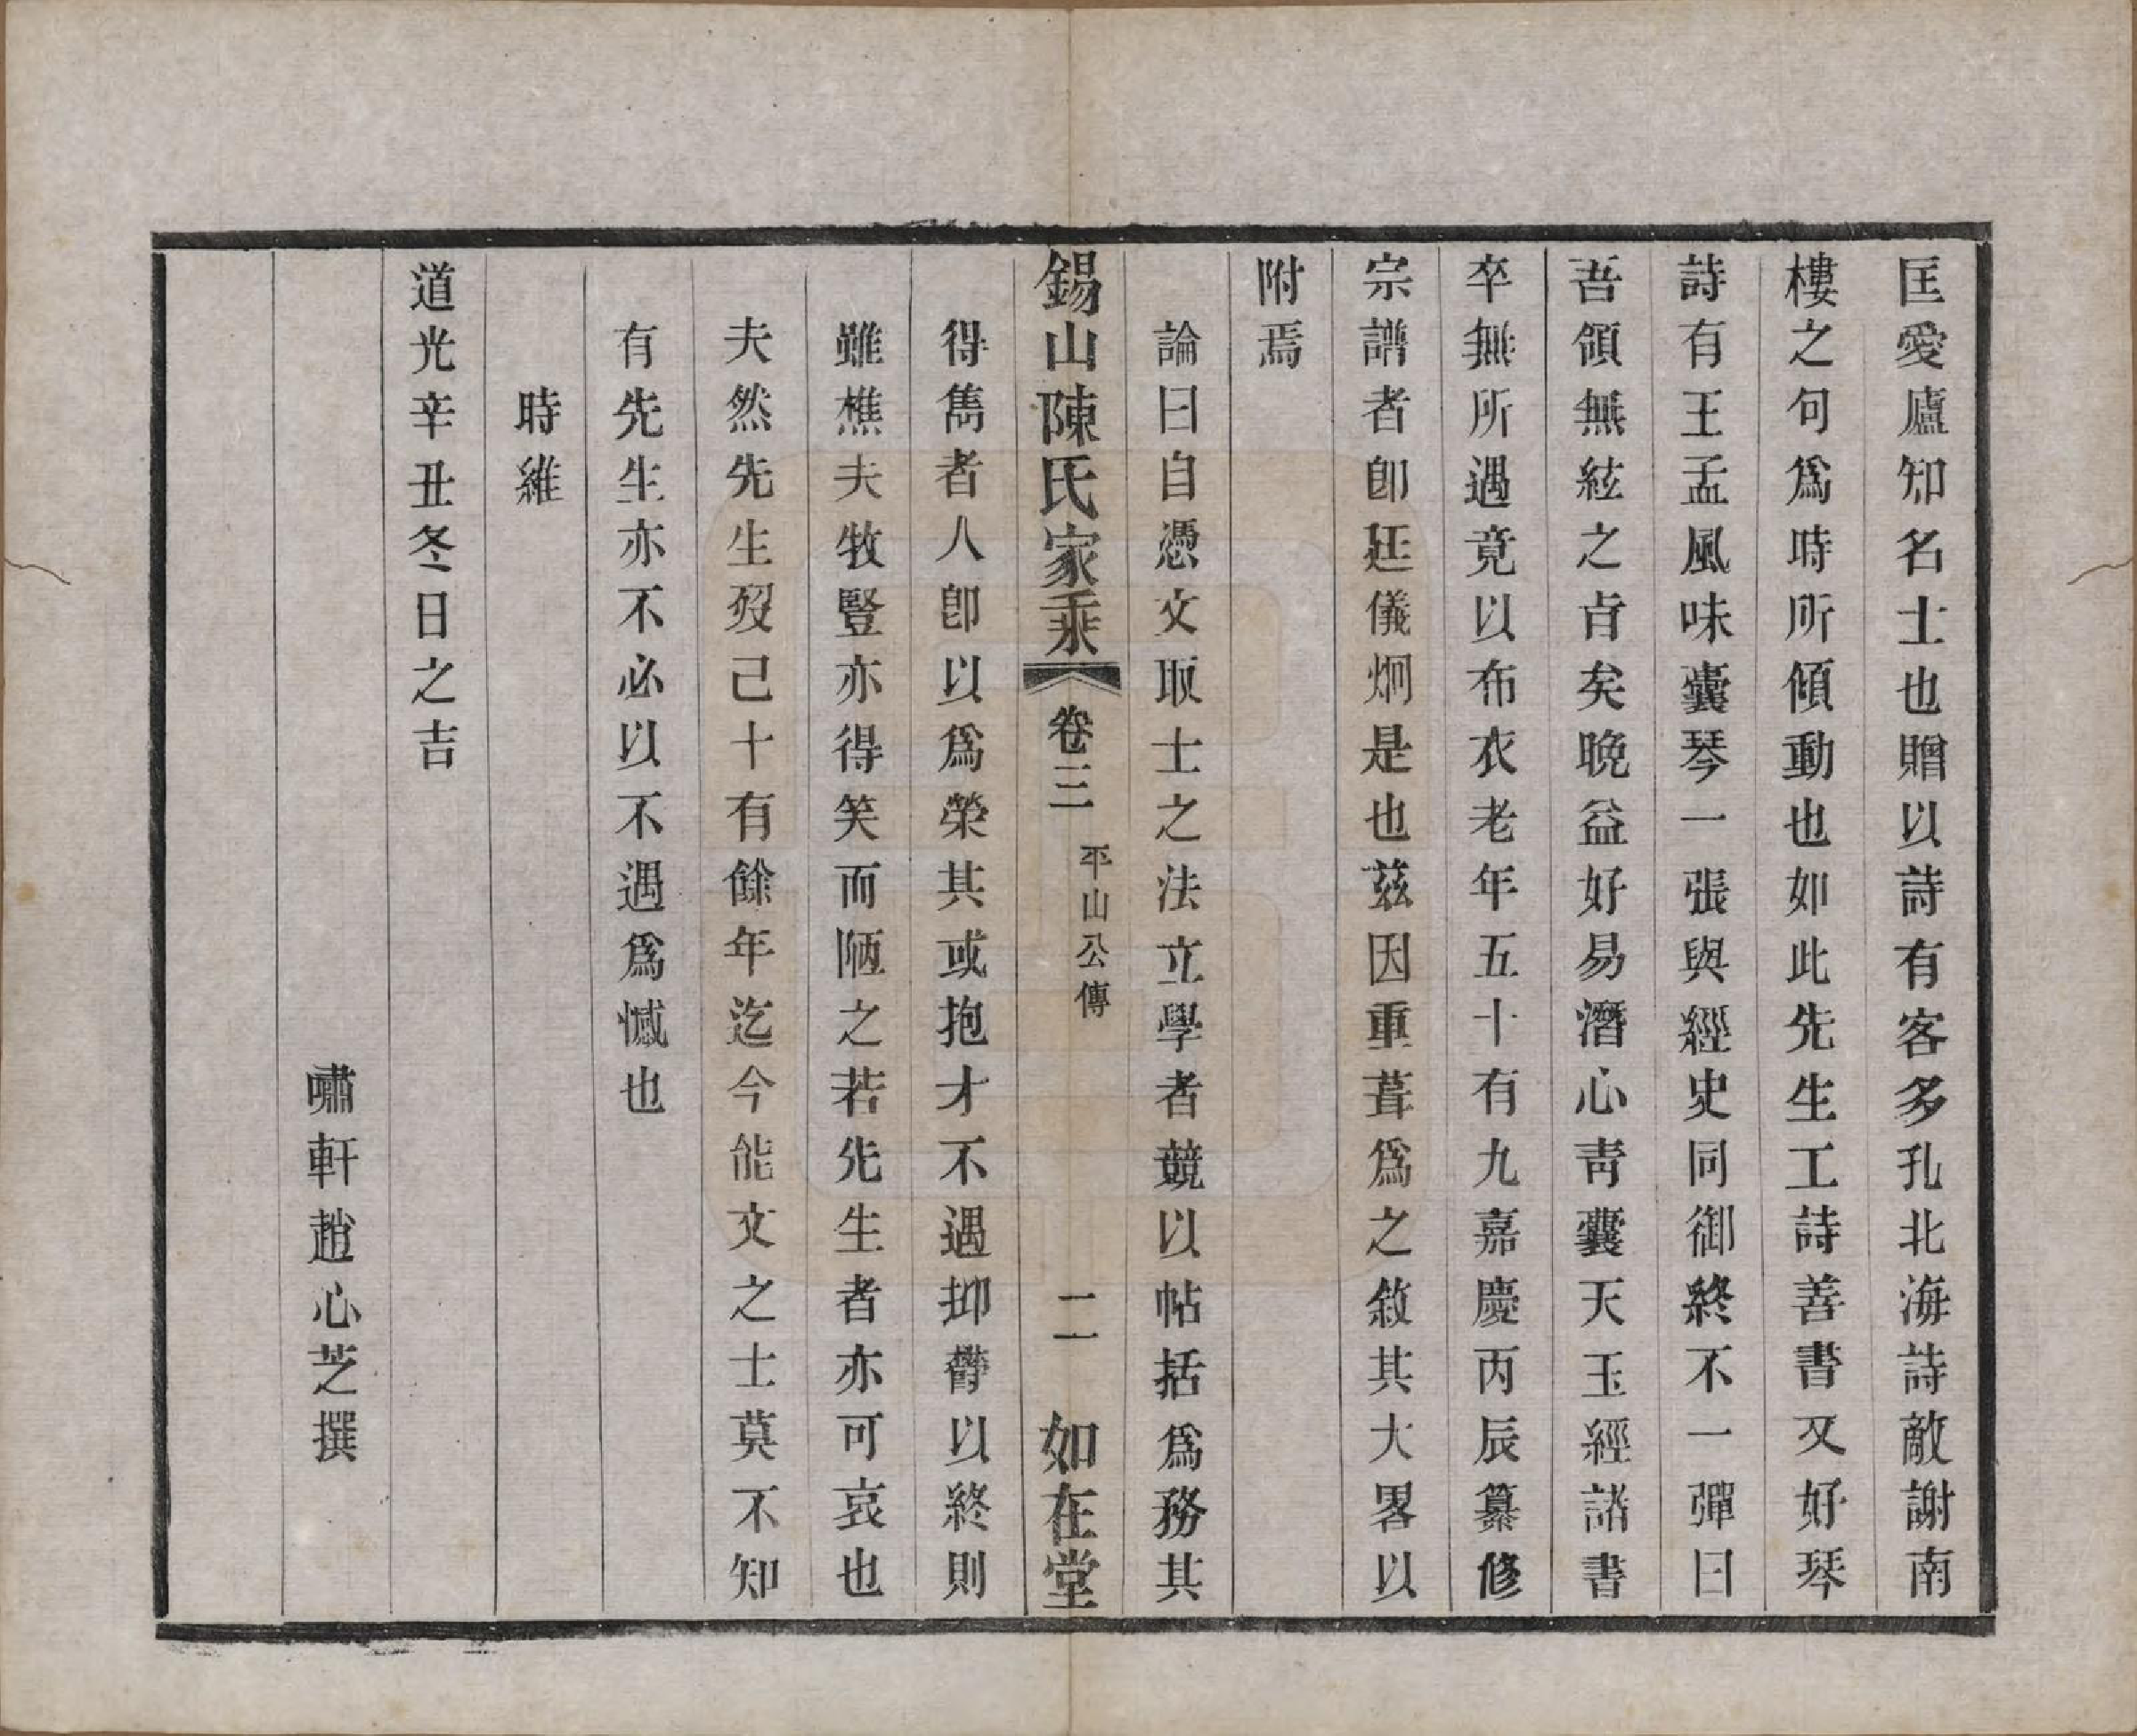 匡愛廬知名士也贈以詩有客多孔北海詩敵謝南
樓之句爲時所傾動也如此先生工詩善書又好琴
詩有王孟風味囊琴一張與經史同御終不一彈曰
吾領無絃之㫖矣晚益好易潛心靑囊天玉經諸書
卒無所遇竟以布衣老年五十有九嘉慶丙辰纂修
宗譜者卽廷儀炯是也茲因重葺爲之敘其大畧以
附焉
論曰自憑文取士之法立學者競以帖括爲務其
錫山陳氏家乘 卷三 平山公傳 二 如在堂
得雋者人卽以爲榮其或抱才不遇抑鬱以終則
雖樵夫牧豎亦得笑而陋之若先生者亦可哀也
夫然先生歿已十有餘年迄今能文之士莫不知
有先生亦不必以不遇爲憾也
時維
道光辛丑冬日之吉
嘯軒趙心芝撰